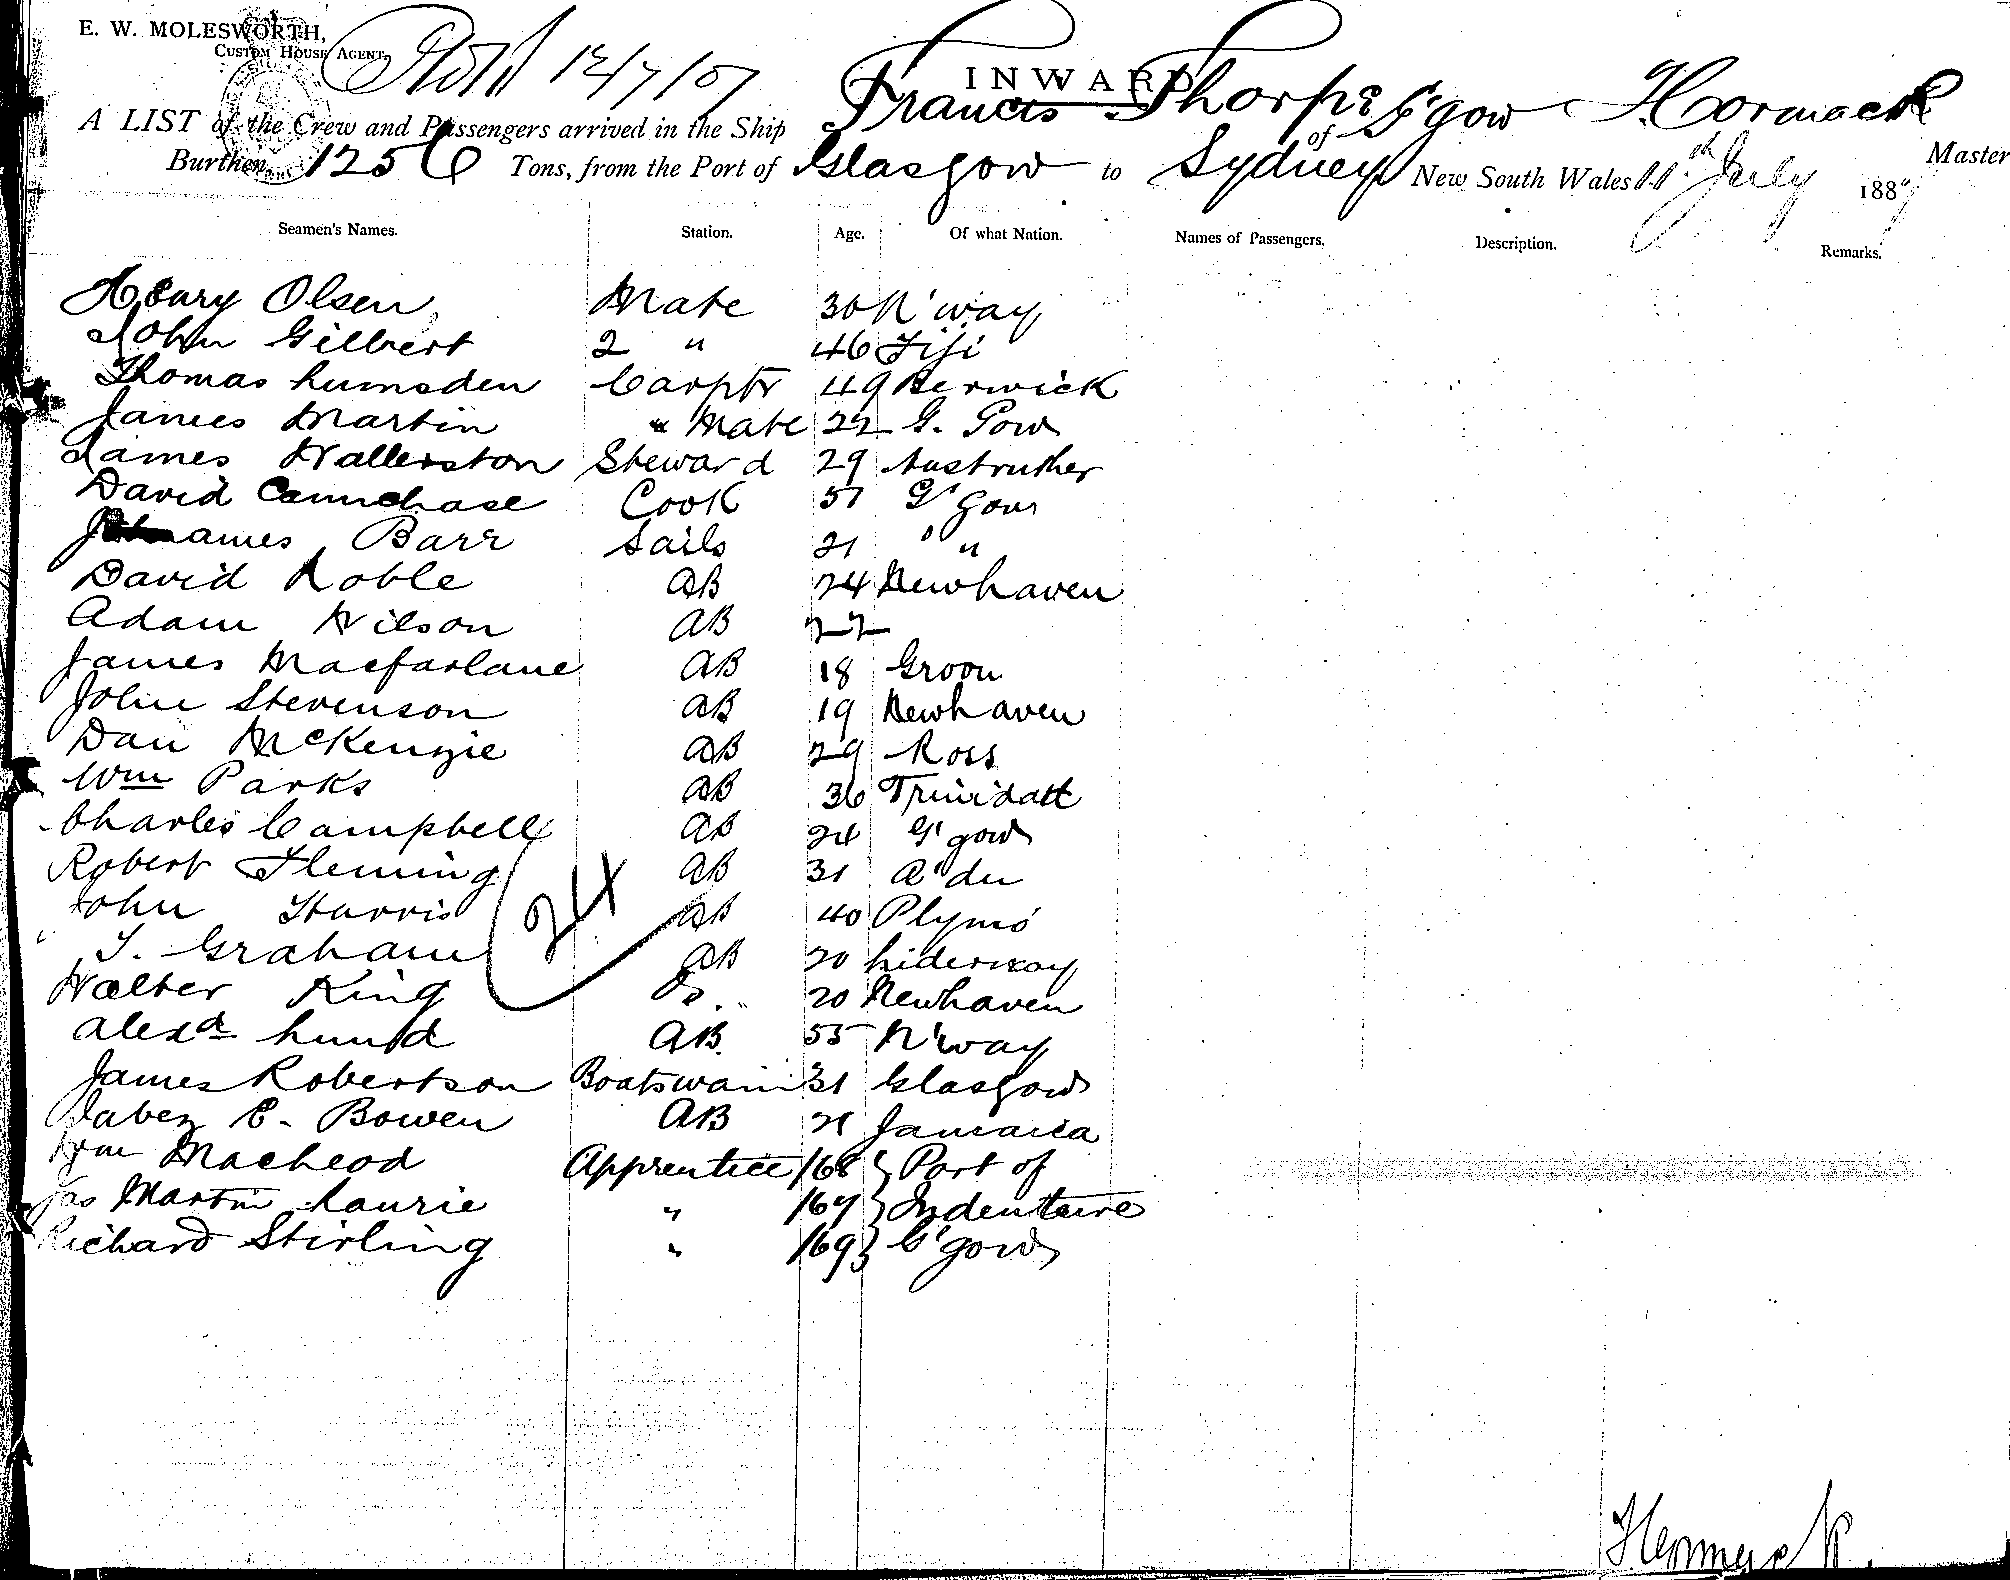 E. W. MOLESWORTH,
CUSTOM HOUSE AGENT.
12/7/87
INWARD
A LIST of the Crew and Passengers arrived in the Ship Francis Thorpe of G'gow Hormack Master
Burthen 1256 Tons, from the Port of Glasgow to Sydney New South Wales 11th July 1887
Seamen's Names. Station. Age. Of what Nation. Names of Passengers. Description. Remarks.
Henry Olsen Mate 30 N'way
John Gilbert 2 " 46 Fiji
Thomas Lumsden Carptr 49 Berwick
James Martin " Mate 22 G. Gow
James Wallerston Steward 29 Anstruther
David Cook 51 G'gow
James Barr Sails 21 " "
David Noble AB 24 Newhaven
Adam Wilson AB 22
James Macfarlane AB 18 Groon
John Stevenson AB 19 Newhaven
Dan McKenzie AB 29 Ross
Wm Parks AB 36 Trinidatt
Charles Campbell AB 24 G'gow
Robert Fleming AB 31 A'dn
John Harris AB 40 Plymo
24
T. Graham AB 20
Walter King 20 Newhaven
Alexd Lund AB. 55 N'way
James Robertson Boatswain 31 Glasgow
Jabez E. Bowen AB 21 Jamaica
Wm MacLeod Apprentice 168 } Port of
Jas Martin Laurie " 167 } Indenture
Richard Stirling " 169 } G'gow